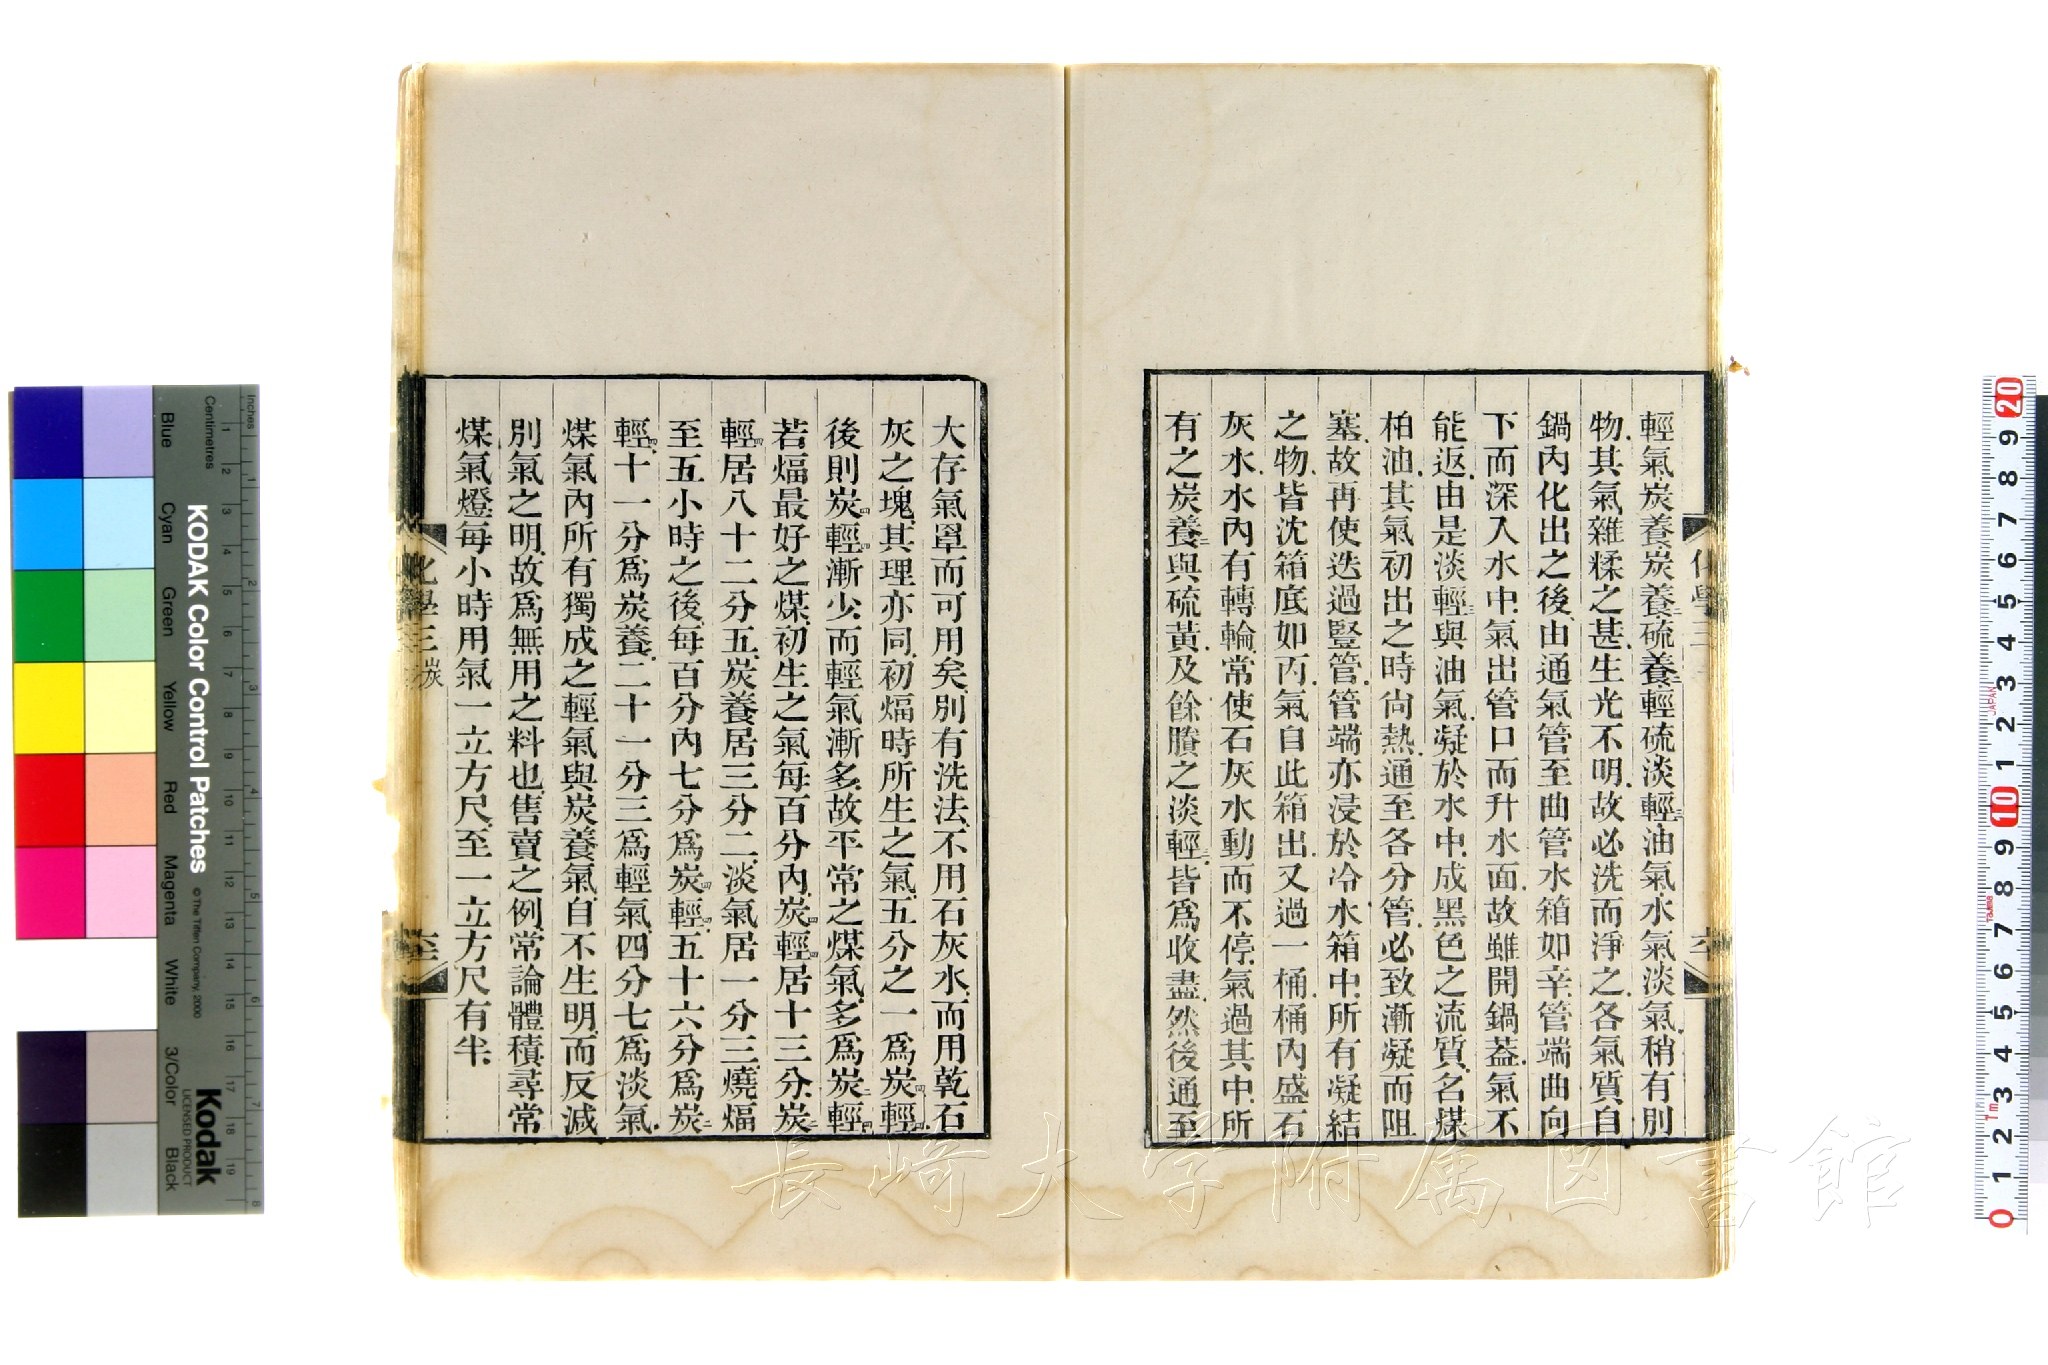 輕氣炭養炭養二硫養二輕硫淡輕三油氣水氣淡氣稍有別
物其氣雜糅之甚生光不明故必洗而淨之各氣質自
鍋內化出之後由通氣管至曲管水箱如辛管端曲向
下而深入水中氣出管口而升水面故雖開鍋葢氣不
能返由是淡輕三與油氣凝於水中成黑色之流質名煤
柏油其氣初出之時尙熱通至各分管必致漸凝而阻
塞故再使迭過豎管管端亦浸於冷水箱中所有凝結
之物皆沈箱底如丙氣自此箱出又過一桶桶內盛石
灰水水內有轉輪常使石灰水動而不停氣過其中所
有之炭養二與硫黃及餘賸之淡輕三皆爲收盡然後通至
大存氣罩而可用矣別有洗法不用石灰水而用乾石
灰之塊其理亦同初煏時所生之氣五分之一爲炭四輕四
後則炭四輕四漸少而輕氣漸多故平常之煤氣多爲炭二輕四
若煏最好之煤初生之氣每百分內炭四輕四居十三分炭二
輕四居八十二分五炭養居三分二淡氣居一分三燒煏
至五小時之後每百分內七分爲炭四輕四五十六分爲炭二
輕四十一分爲炭養二十一分三爲輕氣四分七爲淡氣
煤氣內所有獨成之輕氣與炭養氣自不生明而反減
別氣之明故爲無用之料也售賣之例常論體積尋常
煤氣燈每小時用氣一立方尺至一立方尺有半
化學三 炭
六
長崎大学附属図書館
KODAK Color Control Patches
© The Tiffen Company, 2000
Kodak
LICENSED PRODUCT
Inches
Centimetres
Blue
Cyan
Green
Yellow
Red
Magenta
White
3/Color
Black
1 2 3 4 5 6 7 8 9 10 11 12 13 14 15 16 17 18 19
1 2 3 4 5 6 7 8
20 9 8 7 6 5 4 3 2 1 10 9 8 7 6 5 4 3 2 1 0
JAPAN
1m